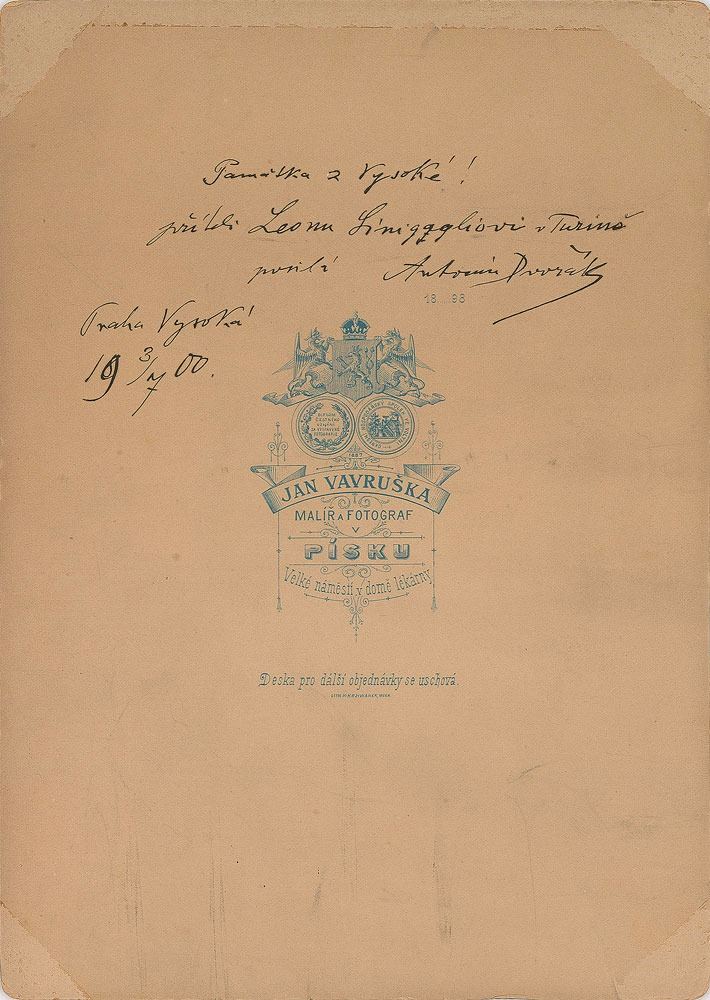 Památka z Vysoké!
příteli Leonu Sinigagliovi v Turině
posílá Antonín Dvořák
18 98
Praha Vysoká
19 3/7 00.
1887
JAN VAVRUŠKA
MALÍŘ A FOTOGRAF
V
PÍSKU
Velké náměstí v domě lékárny.
Deska pro dálší objednávky se uschová.